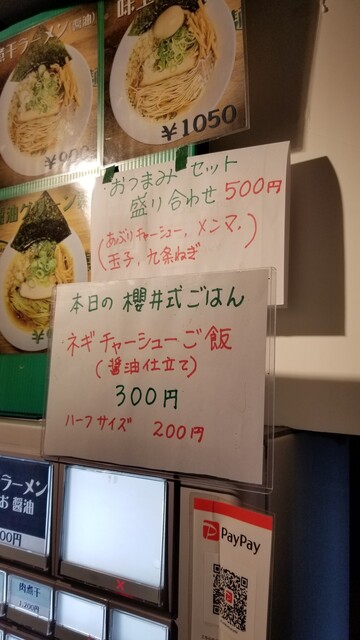 煮干ラーメン(醤油)
¥1050
おつまみセット
盛り合わせ 500円
(あぶりチャーシュー、メンマ、
玉子、九条ねぎ)
本日の 櫻井式ごはん
ネギチャーシューご飯
(醤油仕立て)
300円
ハーフサイズ 200円
ラーメン
醤油
00円
肉煮干
1,200円
PayPay